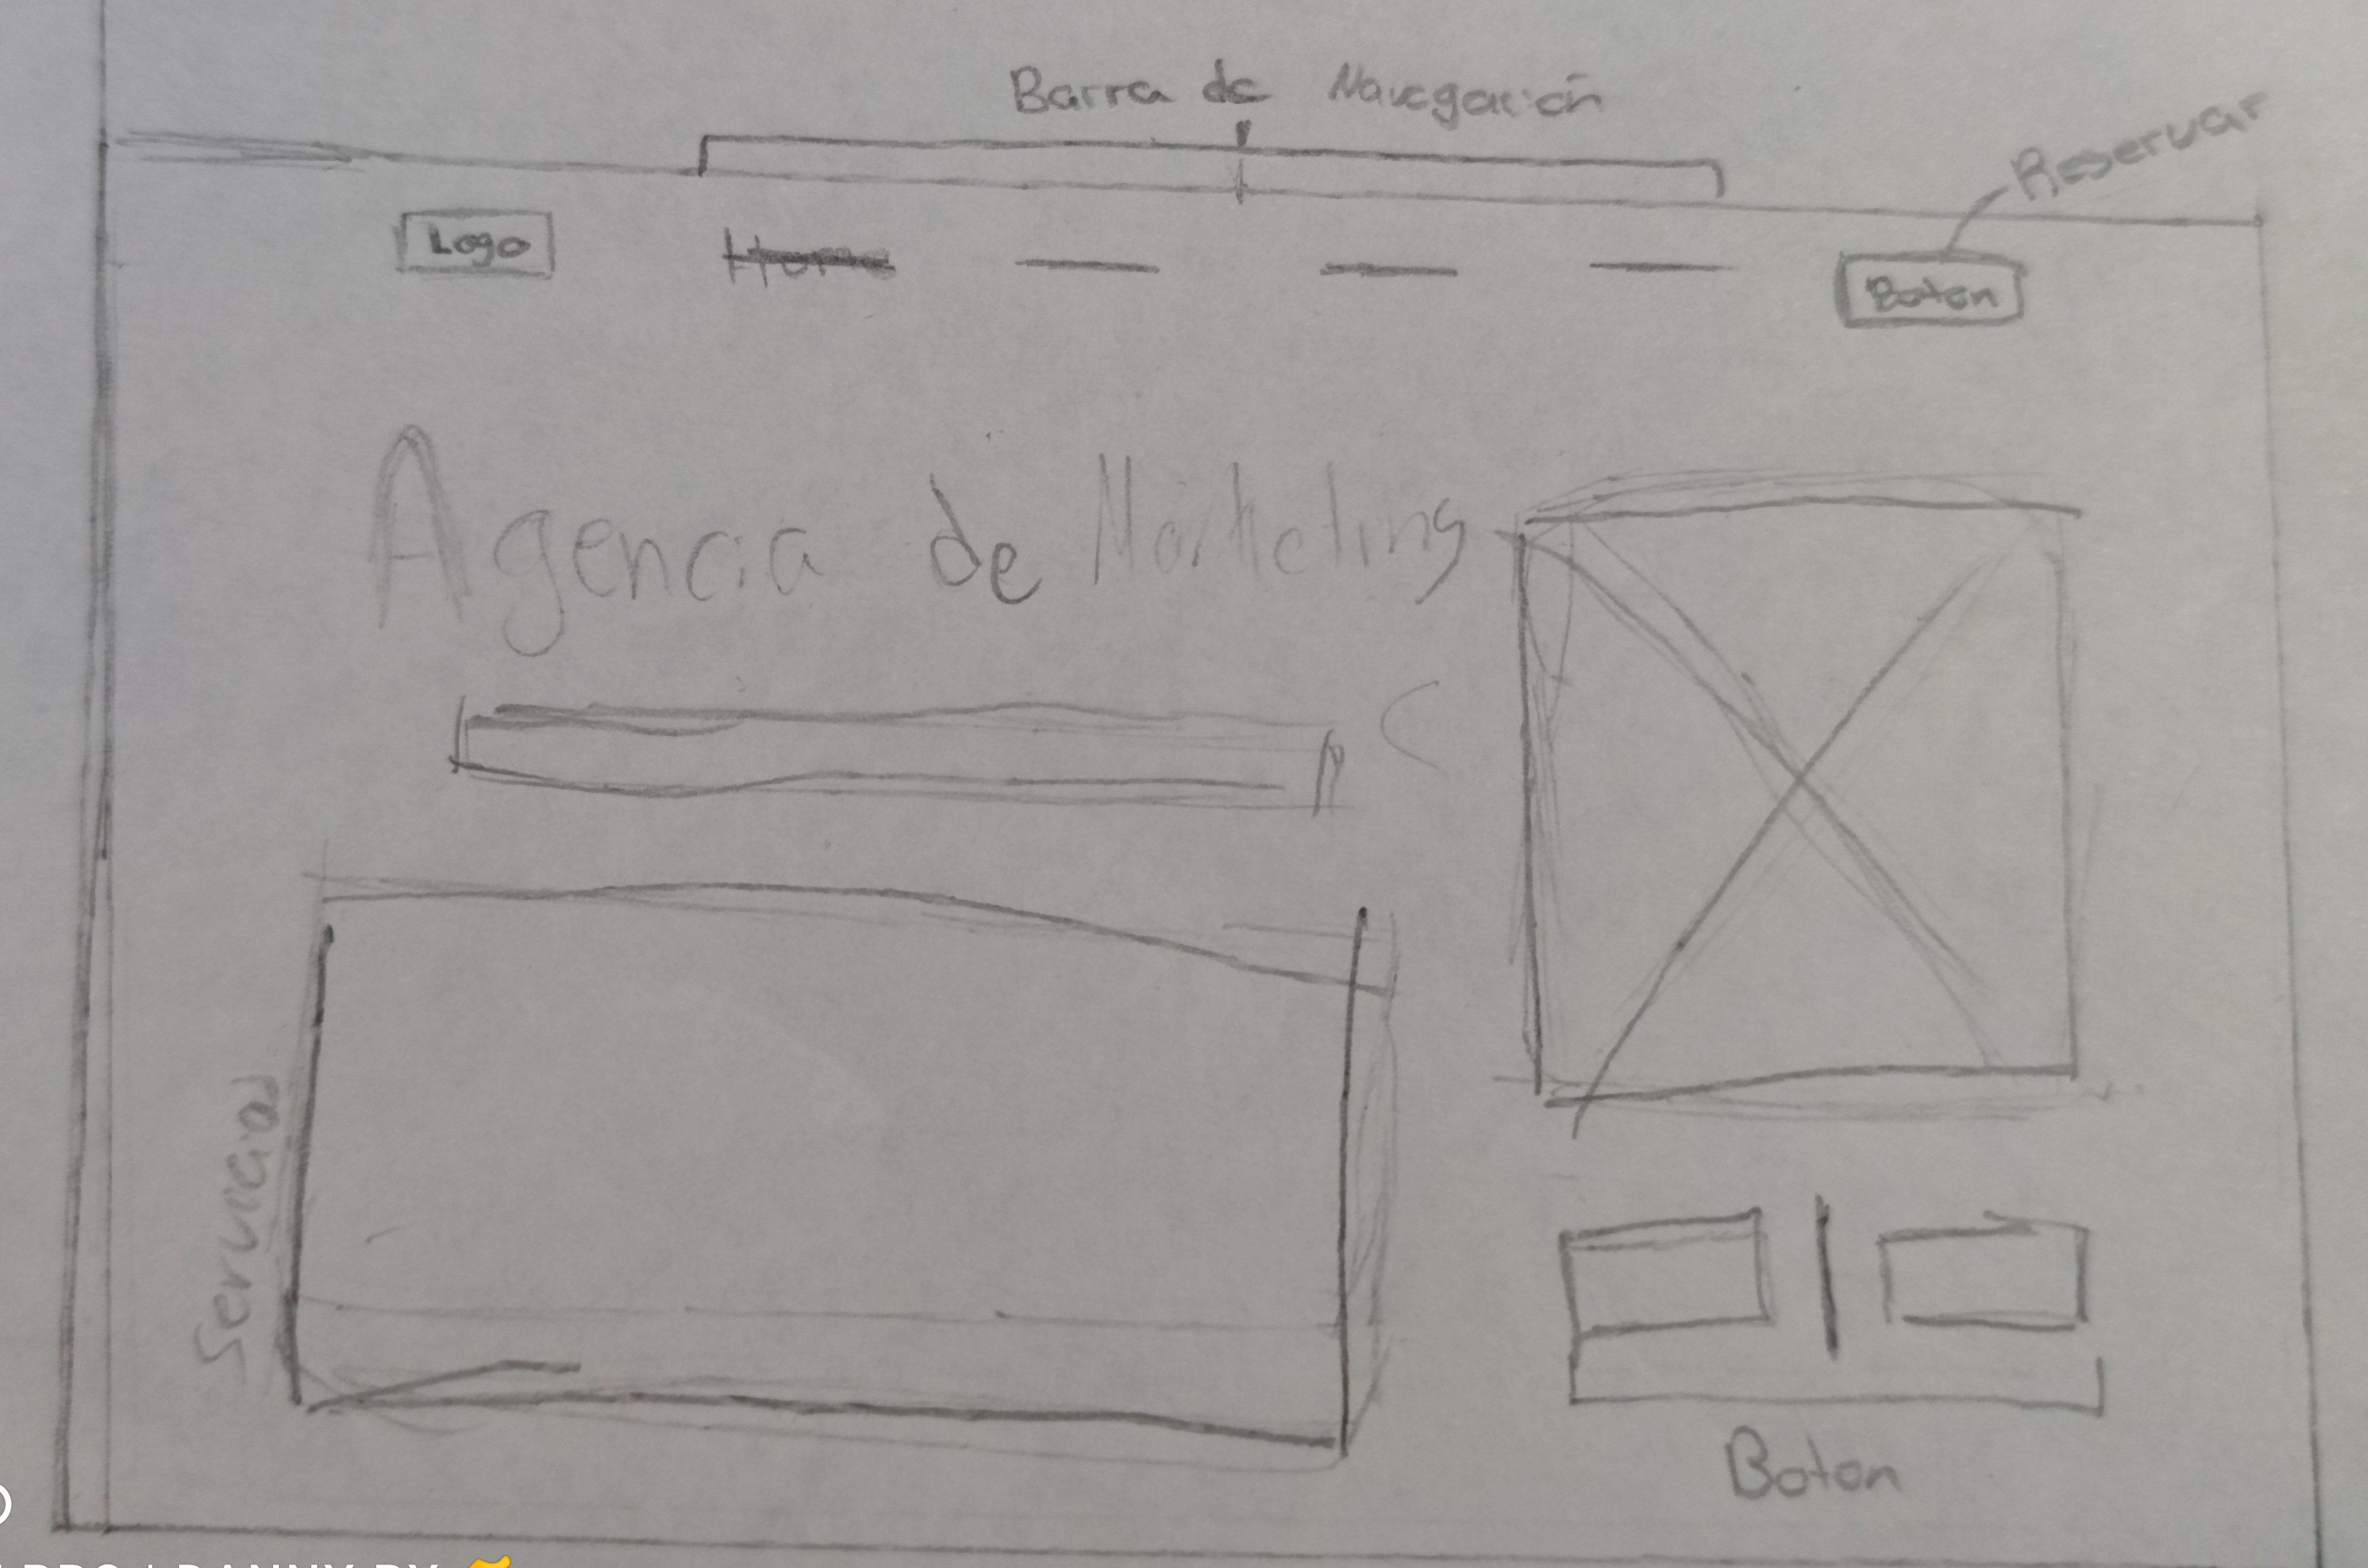 Barra de Navegación
Reservar
Logo
Home
Boton
Agencia de Marketing
Servicios
Boton